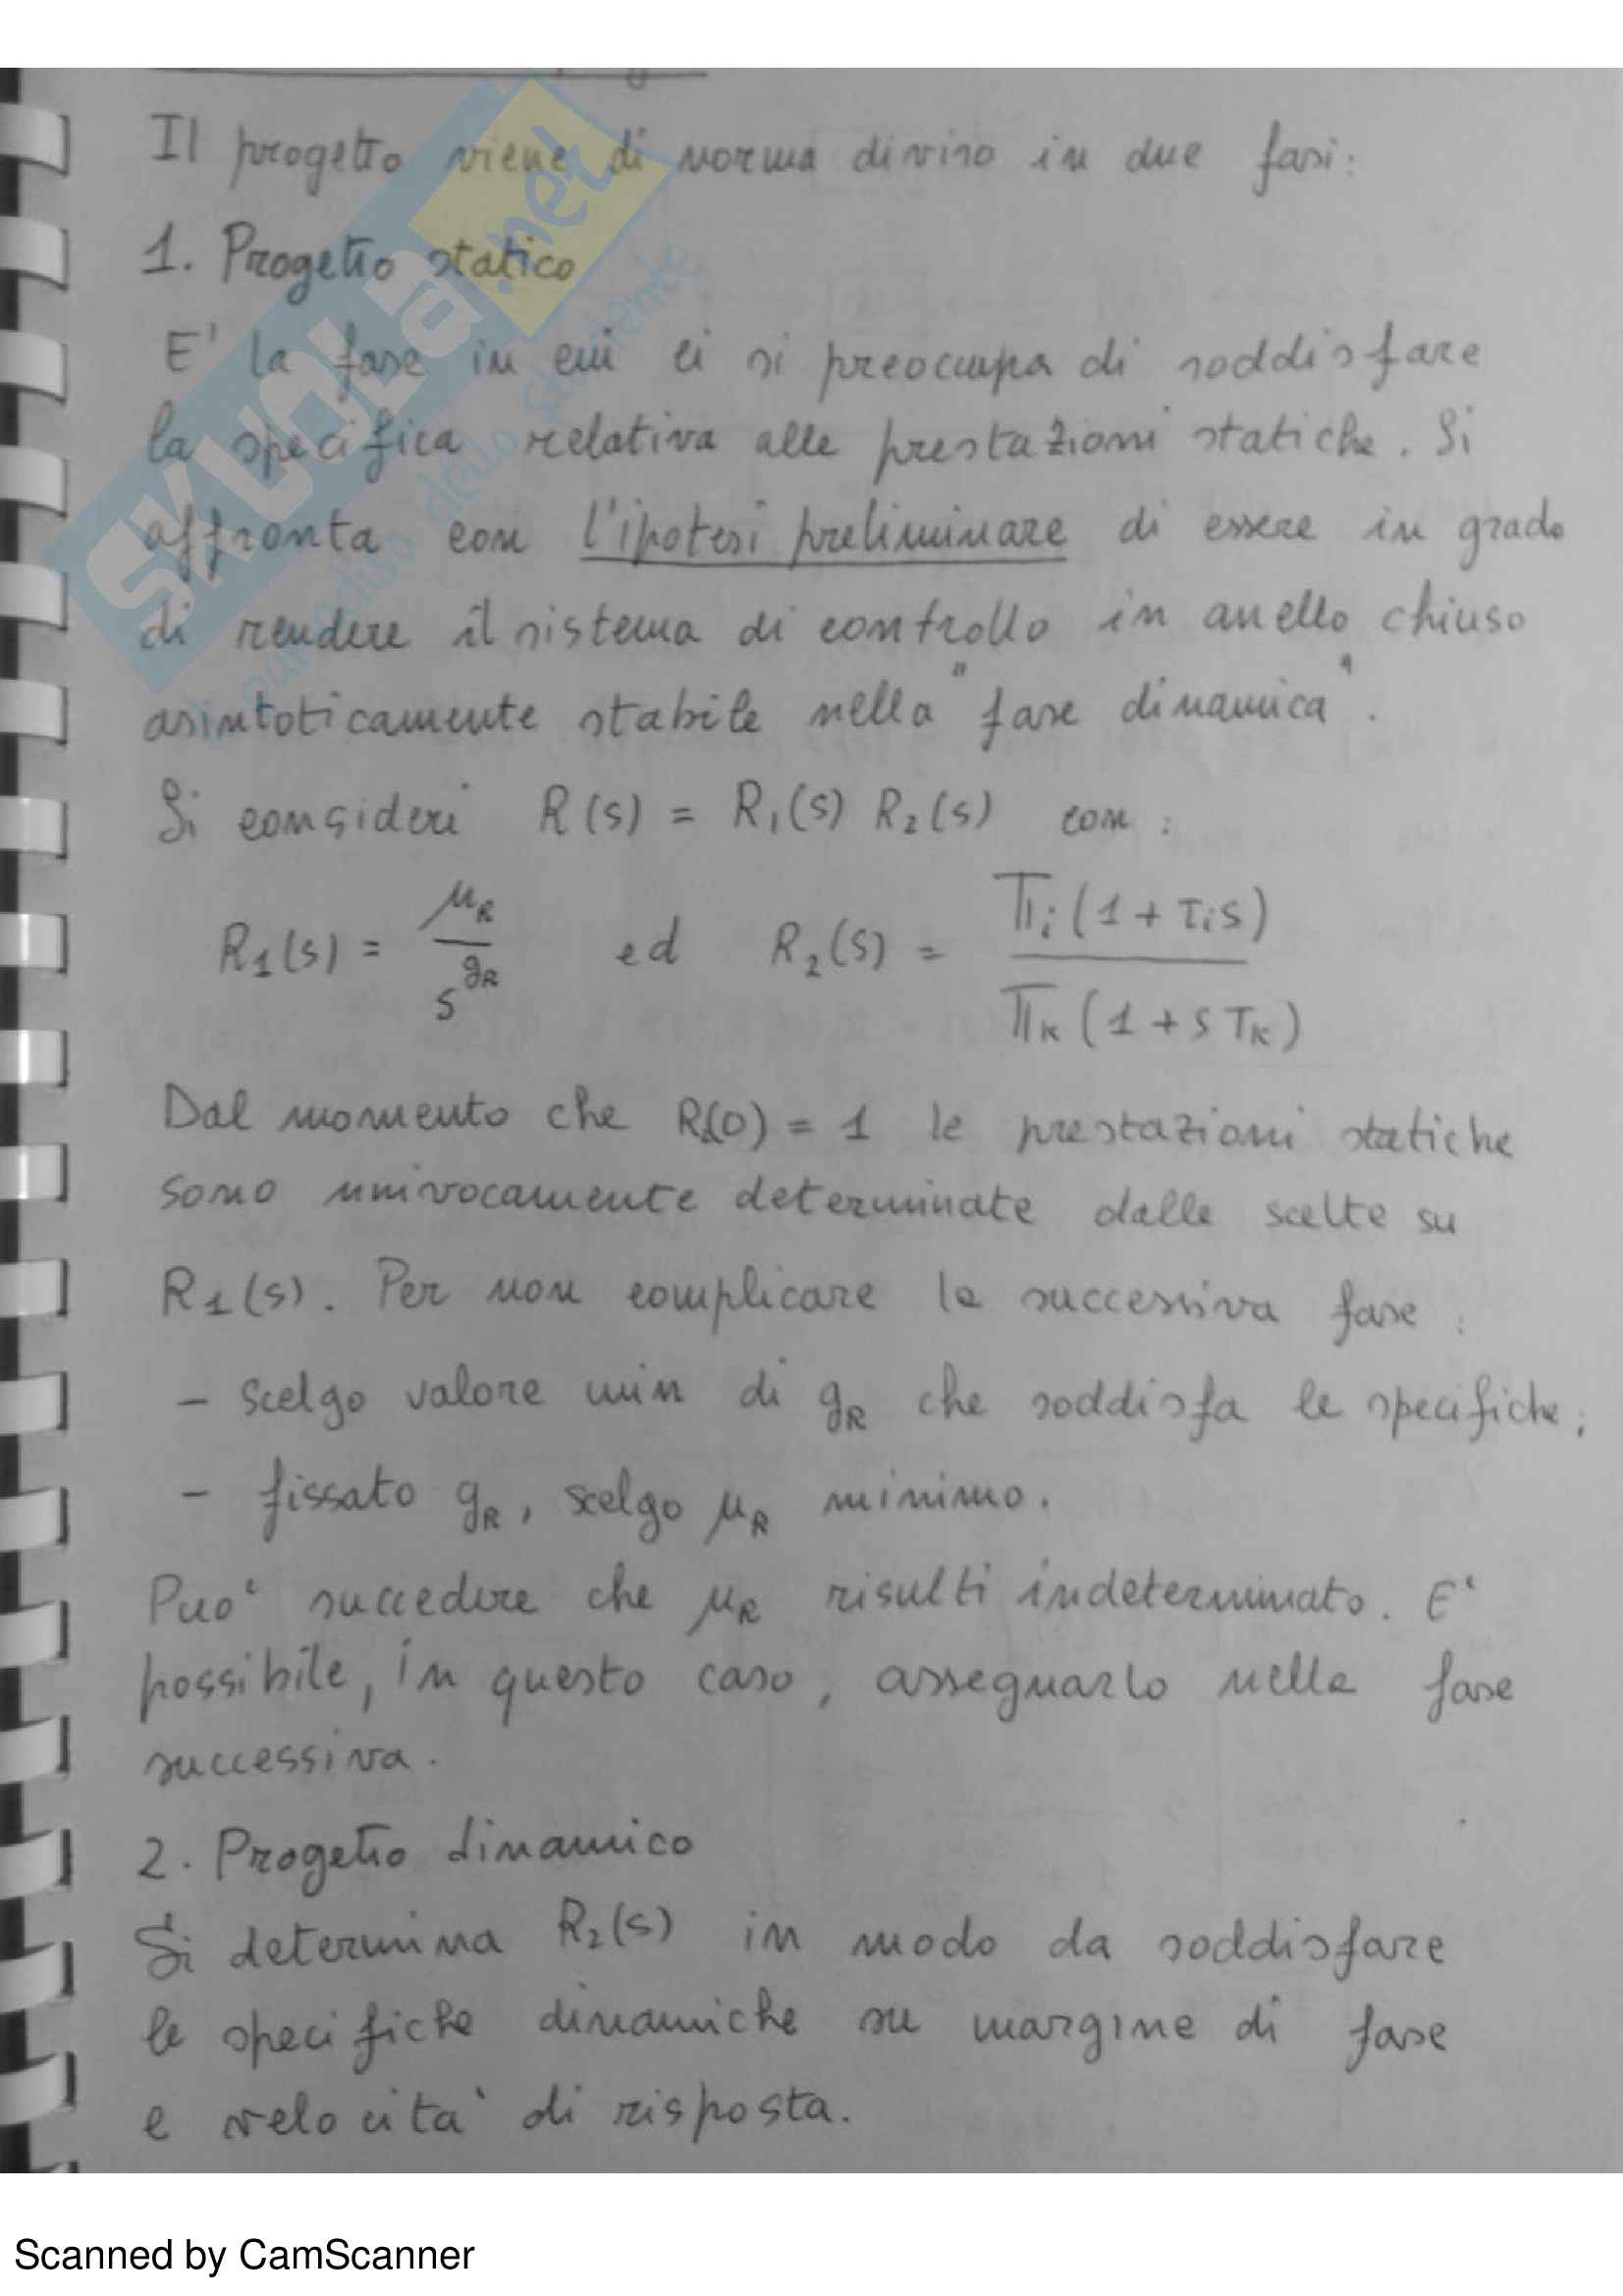 Il progetto viene di norma diviso in due fasi:
1. Progetto statico
E' la fase in cui ci si preoccupa di soddisfare
la specifica relativa alle prestazioni statiche. Si
affronta con l'ipotesi preliminare di essere in grado
di rendere il sistema di controllo in anello chiuso
asintoticamente stabile nella "fase dinamica".
Si consideri R(s) = R₁(s) R₂(s) con:
R₁(s) = μ_R / s^{g_R} ed R₂(s) = Π_i (1 + τ_i s) / Π_k (1 + s T_k)
Dal momento che R₂(0) = 1 le prestazioni statiche
sono univocamente determinate dalle scelte su
R₁(s). Per non complicare la successiva fase:
- scelgo valore min di g_R che soddisfa le specifiche;
- fissato g_R, scelgo μ_R minimo.
Puo' succedere che μ_R risulti indeterminato. E'
possibile, in questo caso, assegnarlo nella fase
successiva.
2. Progetto dinamico
Si determina R₂(s) in modo da soddisfare
le specifiche dinamiche su margine di fase
e velocita' di risposta.
SKUOLA.net
il paradiso dello studente
Scanned by CamScanner